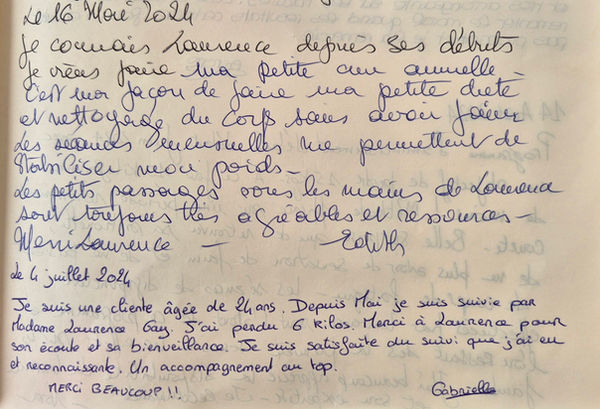 Le 16 Mai 2024
Je connais Laurence depuis ses débuts
Je viens faire ma petite cure annuelle -
C'est ma façon de faire ma petite diète
et nettoyage du corps sans avoir faim
Les séances mensuelles me permettent de
Stabiliser mon poids -
Les petits passages sous les mains de Laurence
sont toujours très agréables et ressources -
Merci Laurence - Edith
le 4 juillet 2024
Je suis une cliente âgée de 24 ans. Depuis Mai je suis suivie par
Madame Laurence Gay. J'ai perdu 6 kilos. Merci à Laurence pour
son écoute et sa bienveillance. Je suis satisfaite du suivi que j'ai eu
et reconnaissante. Un accompagnement au top.
MERCI BEAUCOUP !!
Gabrielle